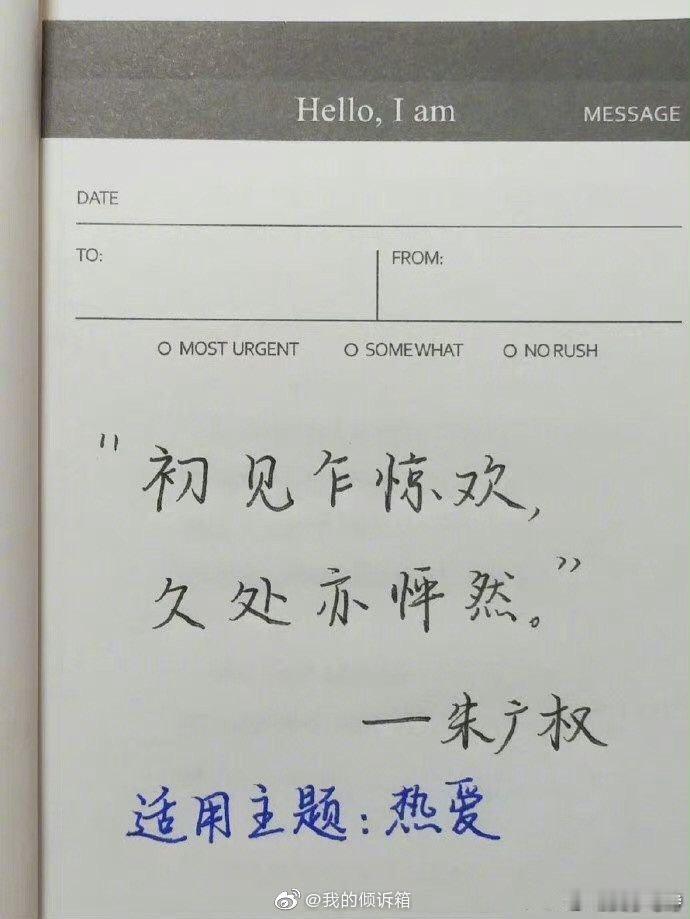 Hello, I am
MESSAGE
DATE
TO:
FROM:
MOST URGENT
SOMEWHAT
NO RUSH
"初见乍惊欢,
久处亦怦然。"
——朱广权
适用主题:热爱
@我的倾诉箱